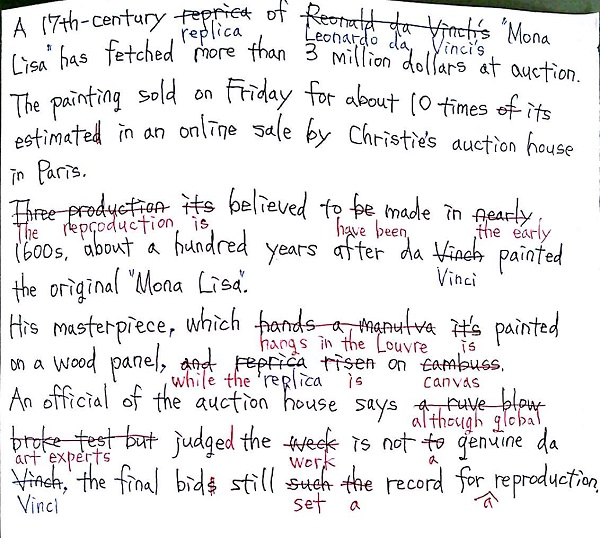 A 17th-century reprica of Reonald da Vinch's "Mona
replica Leonardo da Vinci's
Lisa" has fetched more than 3 million dollars at auction.
The painting sold on Friday for about 10 times of its
estimated in an online sale by Christie's auction house
in Paris.
Three production its believed to be made in nearly
The reproduction is have been the early
1600s, about a hundred years after da Vinch painted
Vinci
the original "Mona Lisa".
His masterpiece, which hands a manulva it's painted
hangs in the Louvre is
on a wood panel, and reprica risen on cambuss.
while the replica is canvas
An official of the auction house says a ruve blow
although global
broke test but judged the weck is not to genuine da
art experts work a
Vinch, the final bids still such the record for reproduction.
Vinci set a a